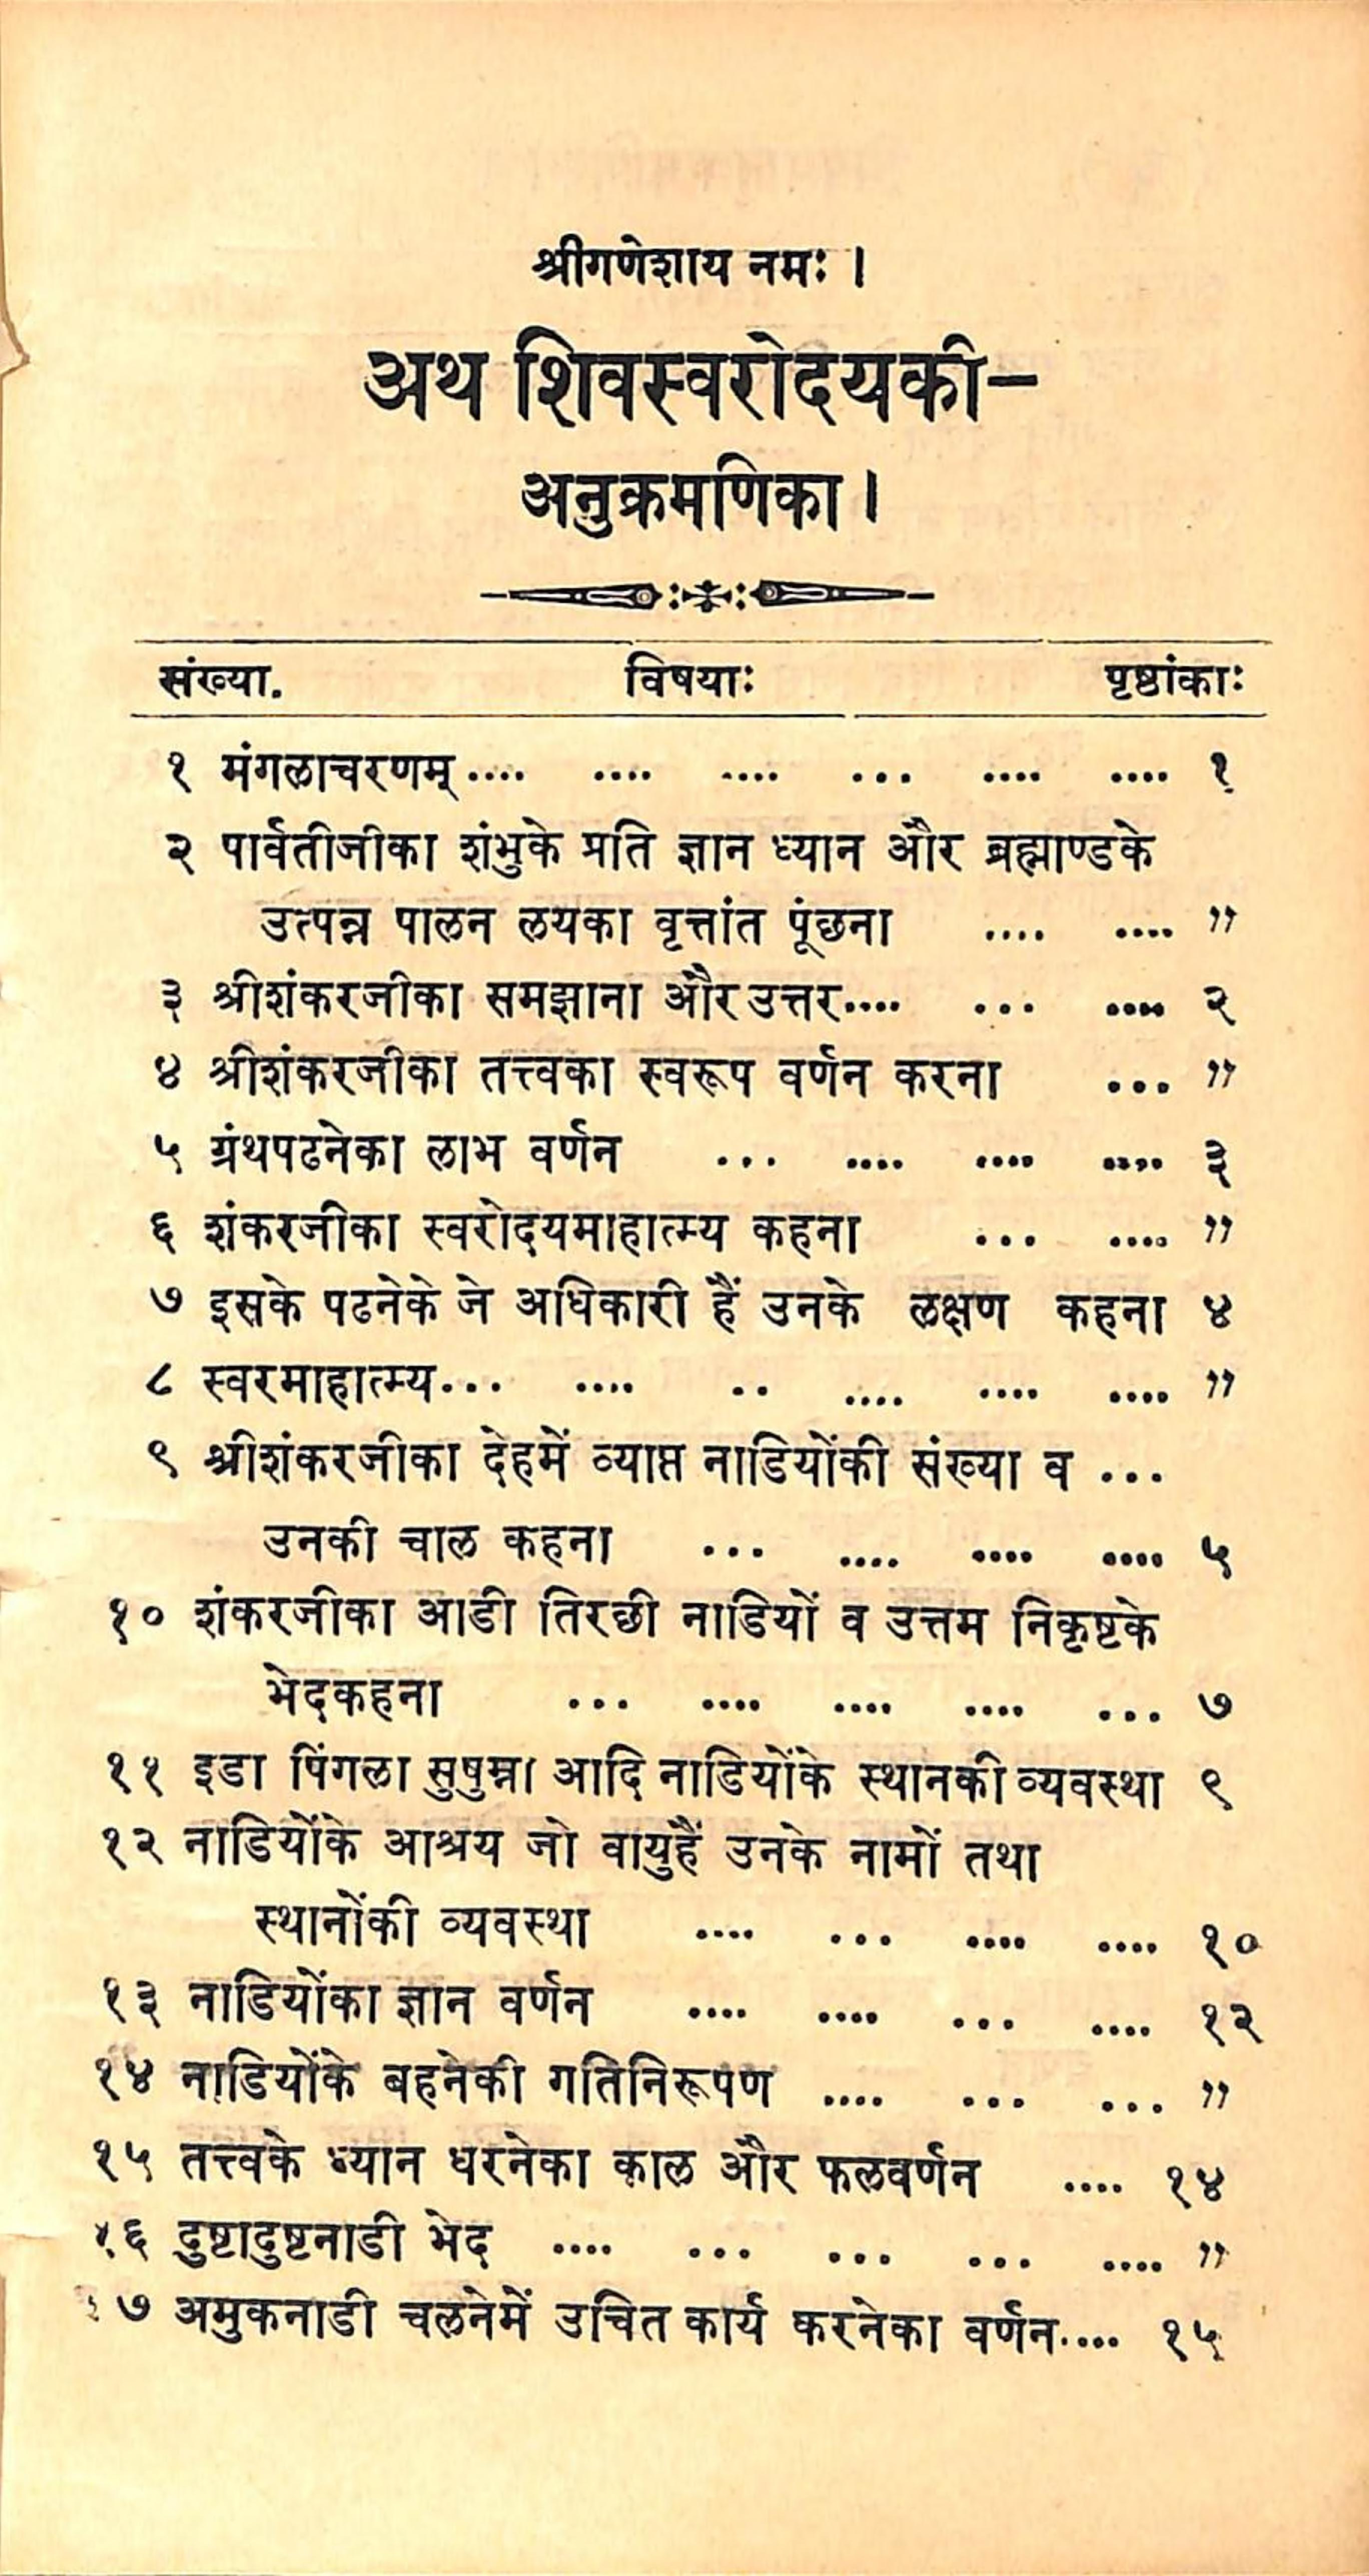 श्रीगणेशाय नमः ।
अथ शिवस्वरोदयकी–
अनुक्रमणिका ।
संख्या. विषयाः पृष्ठांकाः
१ मंगलाचरणम्.... .... .... ... .... .... १
२ पार्वतीजीका शंभुके प्रति ज्ञान ध्यान और ब्रह्माण्डके
उत्पन्न पालन लयका वृत्तांत पूंछना .... .... ”
३ श्रीशंकरजीका समझाना और उत्तर.... ... .... २
४ श्रीशंकरजीका तत्त्वका स्वरूप वर्णन करना ... ”
५ ग्रंथपढनेका लाभ वर्णन ... .... .... .... ३
६ शंकरजीका स्वरोदयमाहात्म्य कहना ... .... ”
७ इसके पढनेके जे अधिकारी हैं उनके लक्षण कहना ४
८ स्वरमाहात्म्य... .... .. .... .... .... ”
९ श्रीशंकरजीका देहमें व्याप्त नाडियोंकी संख्या व ...
उनकी चाल कहना ... .... .... .... ५
१० शंकरजीका आडी तिरछी नाडियों व उत्तम निकृष्टके
भेदकहना ... .... .... .... ... ७
११ इडा पिंगला सुषुम्ना आदि नाडियोंके स्थानकी व्यवस्था ९
१२ नाडियोंके आश्रय जो वायुहैं उनके नामों तथा
स्थानोंकी व्यवस्था .... ... .... .... १०
१३ नाडियोंका ज्ञान वर्णन .... .... ... .... १२
१४ नाडियोंके बहनेकी गतिनिरूपण .... ... ... ”
१५ तत्त्वके ध्यान धरनेका काल और फलवर्णन .... १४
१६ दुष्टादुष्टनाडी भेद .... ... ... ... .... ”
१७ अमुकनाडी चलनेमें उचित कार्य करनेका वर्णन.... १५